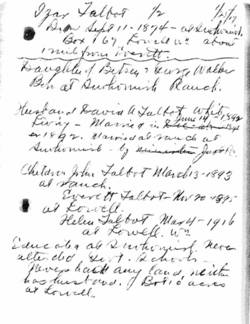 Izar Talbot 1/2
Born Sept 11 - 1874 - at Snohomish
Box 167 Lowell Wn about
1 mile from Everett
Daughter of Betsey & George Walker
Born at Snohomish Ranch.
Husband David A Talbot White
Living - Married June 14, 1892
in 1892. Married at ranch at
Snohomish - by
Children John Talbot March 13 - 1893
at ranch.
Everett Talbot - Nov 20 1895
at Lowell.
Helen Talbot May 4 - 1916
at Lowell. Wn
Educated at Snohomish Never
attended Govt. Schools -
Never had any land, neither
has husband. Bot 10 acres
at Lowell.